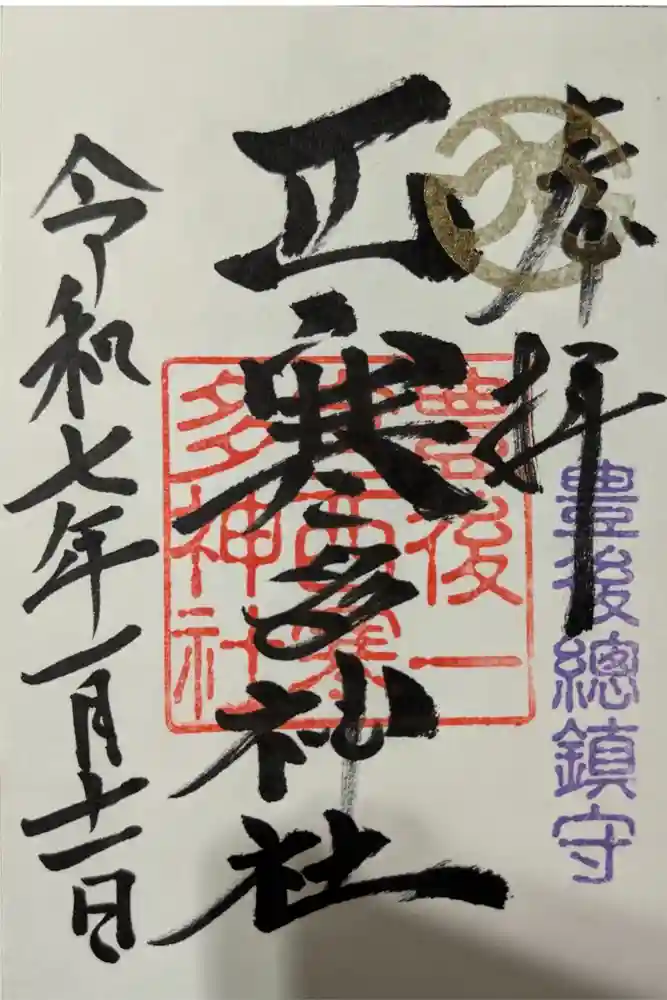 奉拝
豊後總鎮守
西寒多神社
豊後一
宮西寒
多神社
令和七年一月十一日